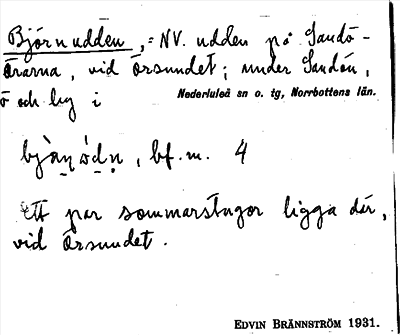 Björnudden, = NV. udden på Sandö-
örarna, vid Örsundet; under Sandön,
ö och lzg i Nederluleå sn o. tg, Norrbottens län.
bf. m. 4
Ett par sommarstugor ligga där,
vid Örsundet.
EDVIN BRÄNNSTRÖM 1931.